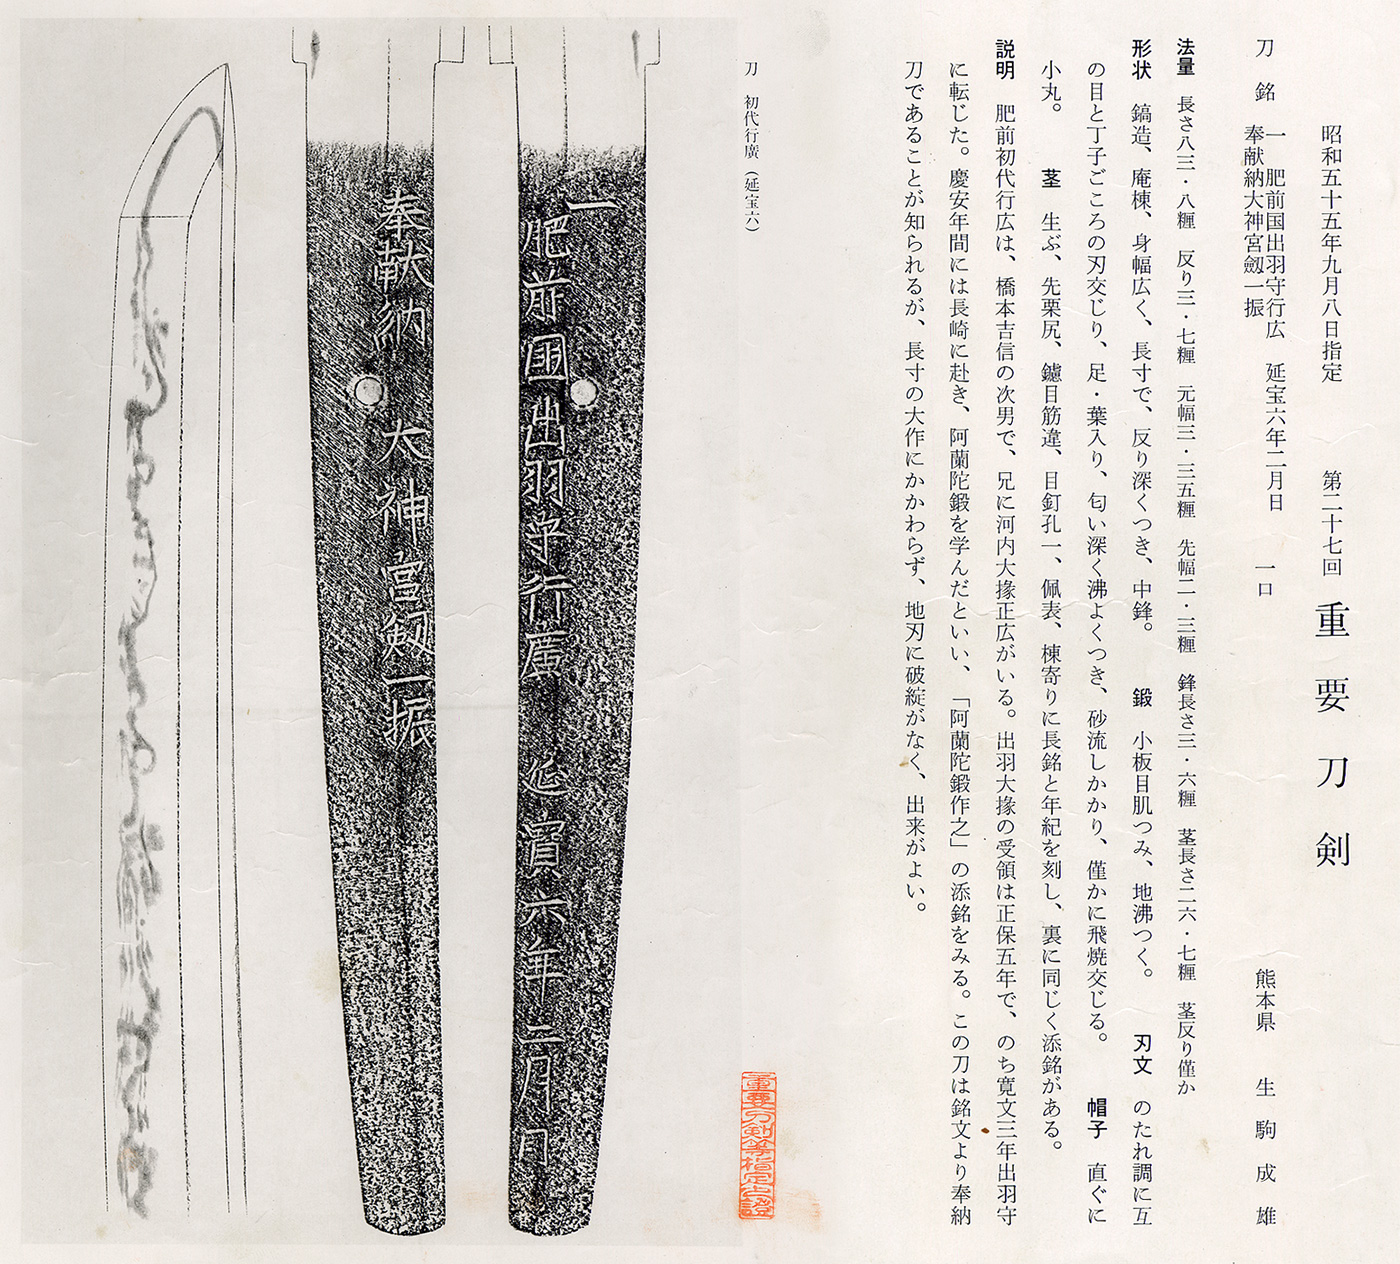 昭和五十五年九月八日指定　第二十七回　重要刀剣
刀　銘　一　肥前国出羽守行広　延宝六年二月日　一口　熊本県　生駒成雄
奉献納大神宮劔一振
法量　長さ八三・八糎　反り三・七糎　元幅三・三五糎　先幅二・三糎　鋒長さ三・六糎　茎長さ二六・七糎　茎反り僅か
形状　鎬造、庵棟、身幅広く、長寸で、反り深くつき、中鋒。　鍛　小板目肌つみ、地沸つく。　刃文　のたれ調に互
の目と丁子ごころの刃交じり、足・葉入り、匂い深く沸よくつき、砂流しかかり、僅かに飛焼交じる。　帽子　直ぐに
小丸。　茎　生ぶ、先栗尻、鑢目筋違、目釘孔一、佩表、棟寄りに長銘と年紀を刻し、裏に同じく添銘がある。
説明　肥前初代行広は、橋本吉信の次男で、兄に河内大掾正広がいる。出羽大掾の受領は正保五年で、のち寛文三年出羽守
に転じた。慶安年間には長崎に赴き、阿蘭陀鍛を学んだといい、「阿蘭陀鍛作之」の添銘をみる。この刀は銘文より奉納
刀であることが知られるが、長寸の大作にかかわらず、地刃に破綻がなく、出来がよい。
刀　初代行廣（延宝六）
重要刀剣等指定之證
一
肥前國出羽守行廣　延寳六年二月日
奉献納　大神宮劔一振